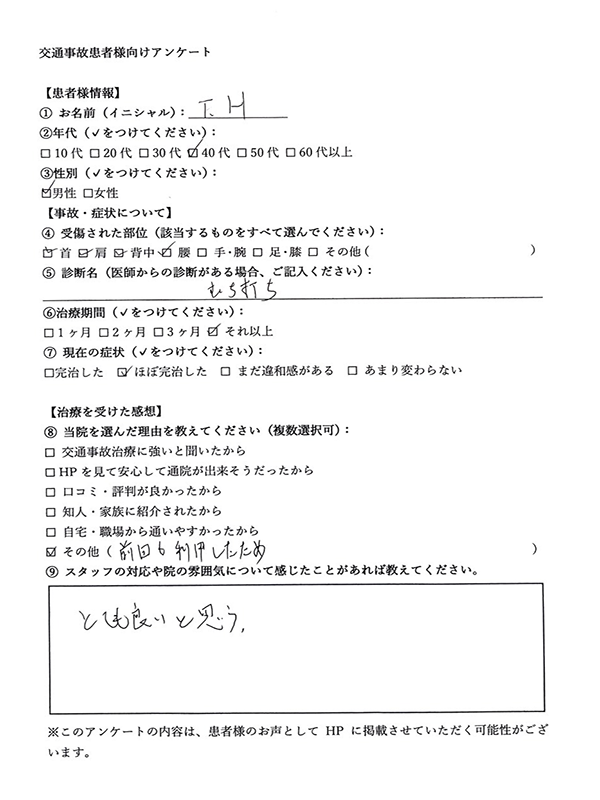 交通事故患者様向けアンケート
【患者様情報】
① お名前（イニシャル）： T. H
②年代（✓をつけてください）：
□10代 □20代 □30代 ☑40代 □50代 □60代以上
③性別（✓をつけてください）：
☑男性 □女性
【事故・症状について】
④ 受傷された部位（該当するものをすべて選んでください）：
☑ 首 ☑ 肩 ☑ 背中 ☑ 腰 □ 手・腕 □ 足・膝 □ その他（ ）
⑤ 診断名（医師からの診断がある場合、ご記入ください）：
むち打ち
⑥治療期間（✓をつけてください）：
□1ヶ月 □2ヶ月 □3ヶ月 ☑ それ以上
⑦ 現在の症状（✓をつけてください）：
□完治した ☑ ほぼ完治した □ まだ違和感がある □ あまり変わらない
【治療を受けた感想】
⑧ 当院を選んだ理由を教えてください（複数選択可）：
□ 交通事故治療に強いと聞いたから
□HPを見て安心して通院が出来そうだったから
□ 口コミ・評判が良かったから
□ 知人・家族に紹介されたから
□ 自宅・職場から通いやすかったから
☑ その他（前回も利用したため ）
⑨ スタッフの対応や院の雰囲気について感じたことがあれば教えてください。
とても良いと思う。
※このアンケートの内容は、患者様のお声として HP に掲載させていただく可能性がござ
います。